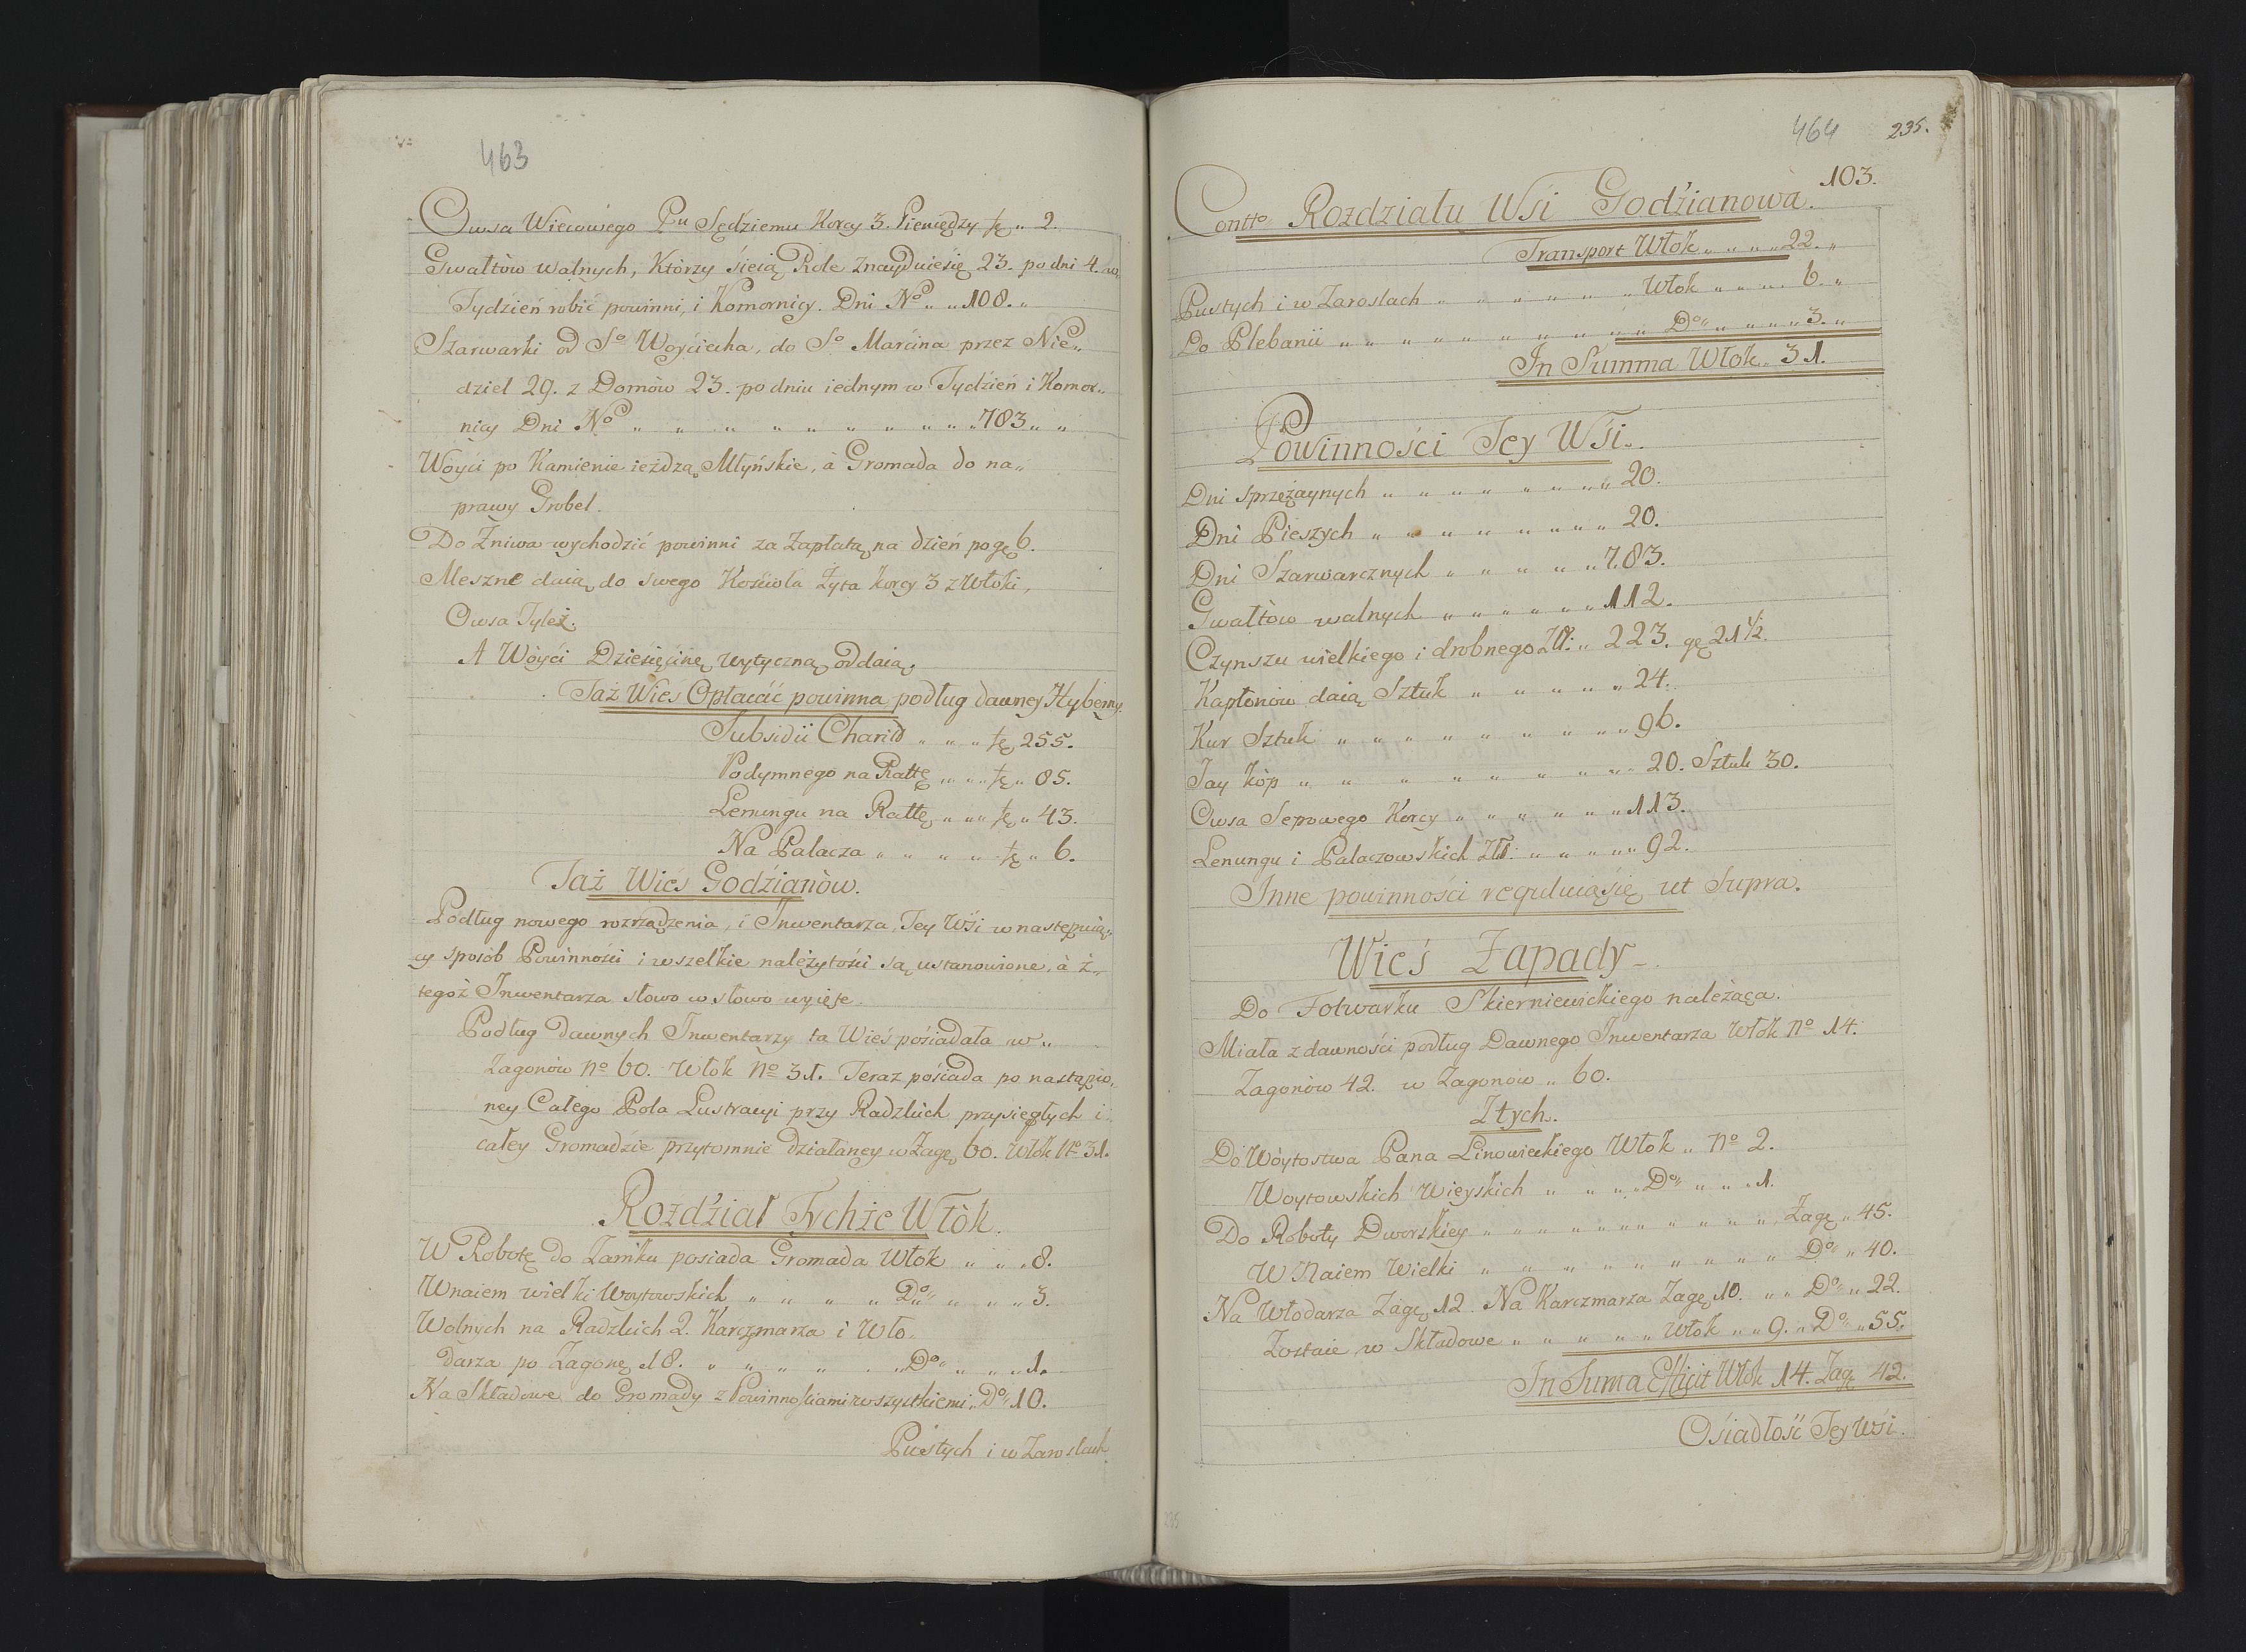 463
Owsa Wiecowego Pu Sędziemu Korcy 3. Pieniędzy tę „ 2.
Gwałtòw walnych, Którzy sieią Role Znayduiesię 23. po dni 4. w
Tydzień robić powinni, i Komornicy. Dni No „ „ 108. „
Szarwarki od So Woyciecha, do So Marcina przez Nie„
dziel 29. z Domòw 23. po dniu iednym w Tydzień i Komor„
nicy Dni No „ „ „ „ „ „ „ „ „ „ 783 „ „
Woyci po Kamienie ieżdzą Młyńskie, à Gromada do na„
prawy Grobel.
Do Zniwa wychodzić powinni za Zapłatą na dzień po gę 6.
Meszne daią do swego Kościoła Żyta korcy 3 z Włoki,
Owsa Tyleż.
A Wòyci Dziesięcinę wytyczną oddaią.
Taż Wieś Opłacać powinna podług dawney Hyberny.
Subsidii Charit „ „ „ tę 255.
Podymnego na Rattę „ „ „ tę „ 85.
Lenungu na Rattę „ „ „ tę „ 43.
Na Palacza „ „ „ „ tę „ 6.
Taż Wieś Godzianòw.
Podług nowego rozrządzenia, i Inwentarza, Tey Wśi w następuią„
cy sposòb Powinności i wszelkie należytości są ustanowione, à z„
tegoż Inwentarza słowo w słowo wyięte.
Podług dawnych Inwentarzy ta Wieś pośiadała w „
Zagonòw No 60. Włok No 31. Teraz pośiada po nastąpio„
ney Całego Pola Lustracyi przy Radzkich przysięgłych i
całey Gromadzie przytomnie działaney w Zagę 60. Włok No 31.
Rozdźiał Tychże Włòk.
W Robotę do Zamku posiada Gromada Włok „ „ „ 8.
Wnaiem wielki Woytowskich „ „ „ „ Do „ „ „ 3.
Wolnych na Radzkich 2. Karczmarza i Wło„
darza po Zagonę 18. „ „ „ „ „ Do „ „ „ 1.
Na Składowe do Gromady z Powinnościami wszystkiemi „ Do 10.
Pustych i w Zaroslach
464 235.
103.
Contto Rozdziału Wśi Godźianowa.
Transport Włok „ „ „ „ 22. „
Pustych i w Zaroslach „ „ „ „ „ „ Włok „ „ „ 6. „
Do Plebanii „ „ „ „ „ „ „ „ „ Do „ „ „ „ 3. „
In Summa Włok „ 31.
Powinności Tey Wśi.
Dni sprzężaynych „ „ „ „ „ „ „ 20.
Dni Pieszych „ „ „ „ „ „ „ „ 20.
Dni Szarwarcznych „ „ „ „ „ 783.
Gwałtòw walnych „ „ „ „ „ „ 112.
Czynszu wielkiego i drobnego Zł: „ 223. gę 21 1/2.
Kapłonòw daią Sztuk „ „ „ „ „ 24.
Kur Sztuk „ „ „ „ „ „ „ „ „ 96.
Jay kòp „ „ „ „ „ „ „ „ „ 20. Sztuk 30.
Owsa Sepowego Korcy „ „ „ „ „ „ 113.
Lenungu i Palaczowskich Zł: „ „ „ „ „ 92.
Inne powinności reguluiąsię ut Supra.
Wieś Zapady
Do Folwarku Skierniewickiego należąca.
Miała z dawności podług Dawnego Inwentarza Włòk No 14.
Zagonòw 42. w Zagonòw „ 60.
Ztych.
Do Wòytostwa Pana Linowieckiego Włok „ No 2.
Woytowskich Wieyskich „ „ „ „ Do „ „ „ 1.
Do Roboty Dworskiey „ „ „ „ „ „ „ „ „ „ Zagę „ 45.
W Naiem Wielki „ „ „ „ „ „ „ „ „ Do „ 40.
Na Włodarza Zagę 12. Na Karczmarza Zagę 10. „ „ Do „ 22.
Zostaie w Składowe „ „ „ „ „ Włok „ „ 9. „ Do „ 55.
In Suma Efficit Włok 14. Zagę 42.
Ośiadłość Tey Wśi.
235